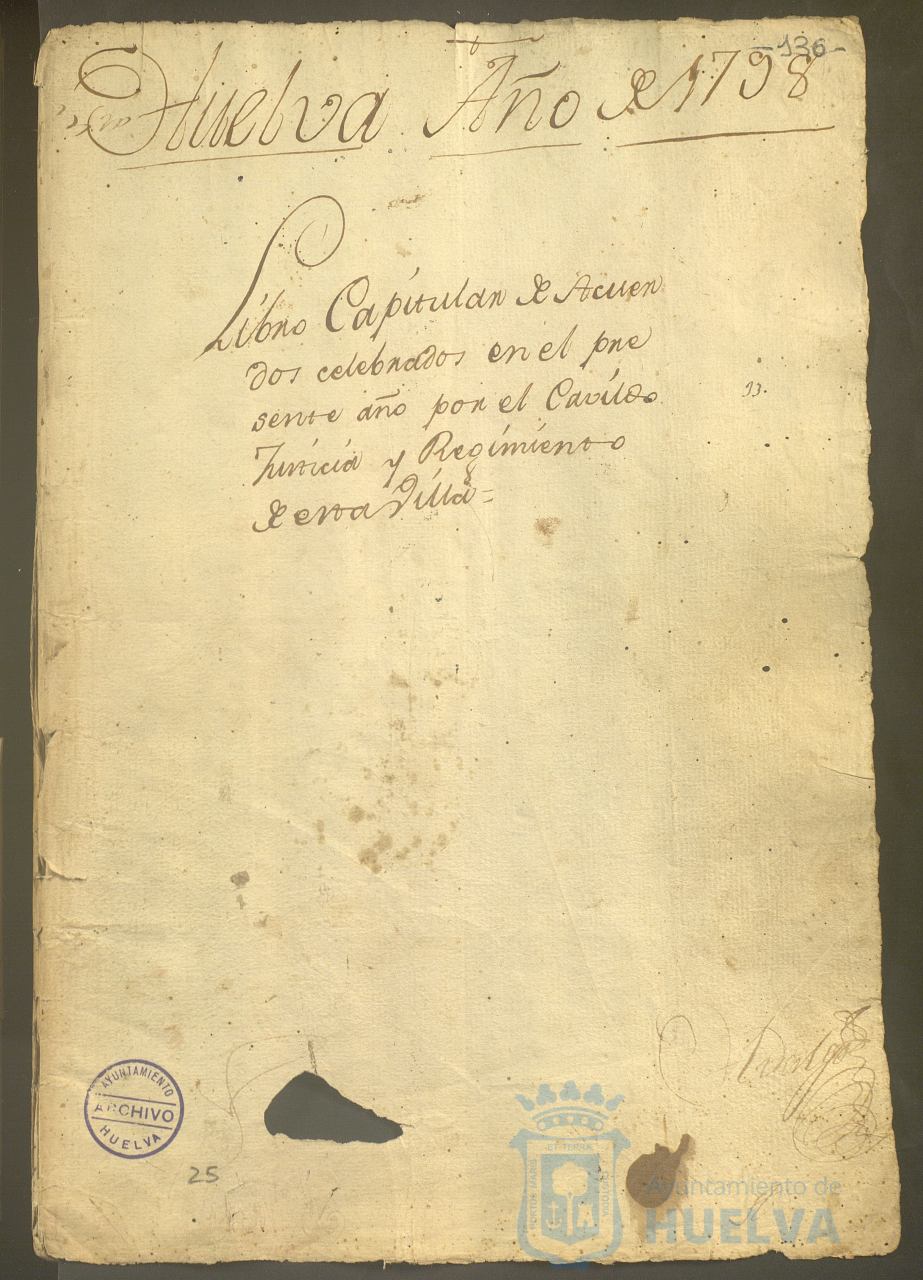 -136-
Huelva Año de 1798
Libro Capitular de Acuer
dos celebrados en el pre
sente año por el Cavildo
Justicia y Regimiento
de esta Villa=
13.
AYUNTAMIENTO
ARCHIVO
HUELVA
25
Ayuntamiento de
HUELVA